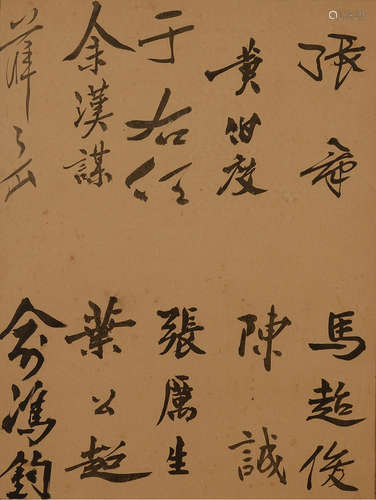 張羣
黃伯度
于右任
余漢謀
薛岳
馬超俊
陳誠
張厲生
葉公超
俞鴻鈞